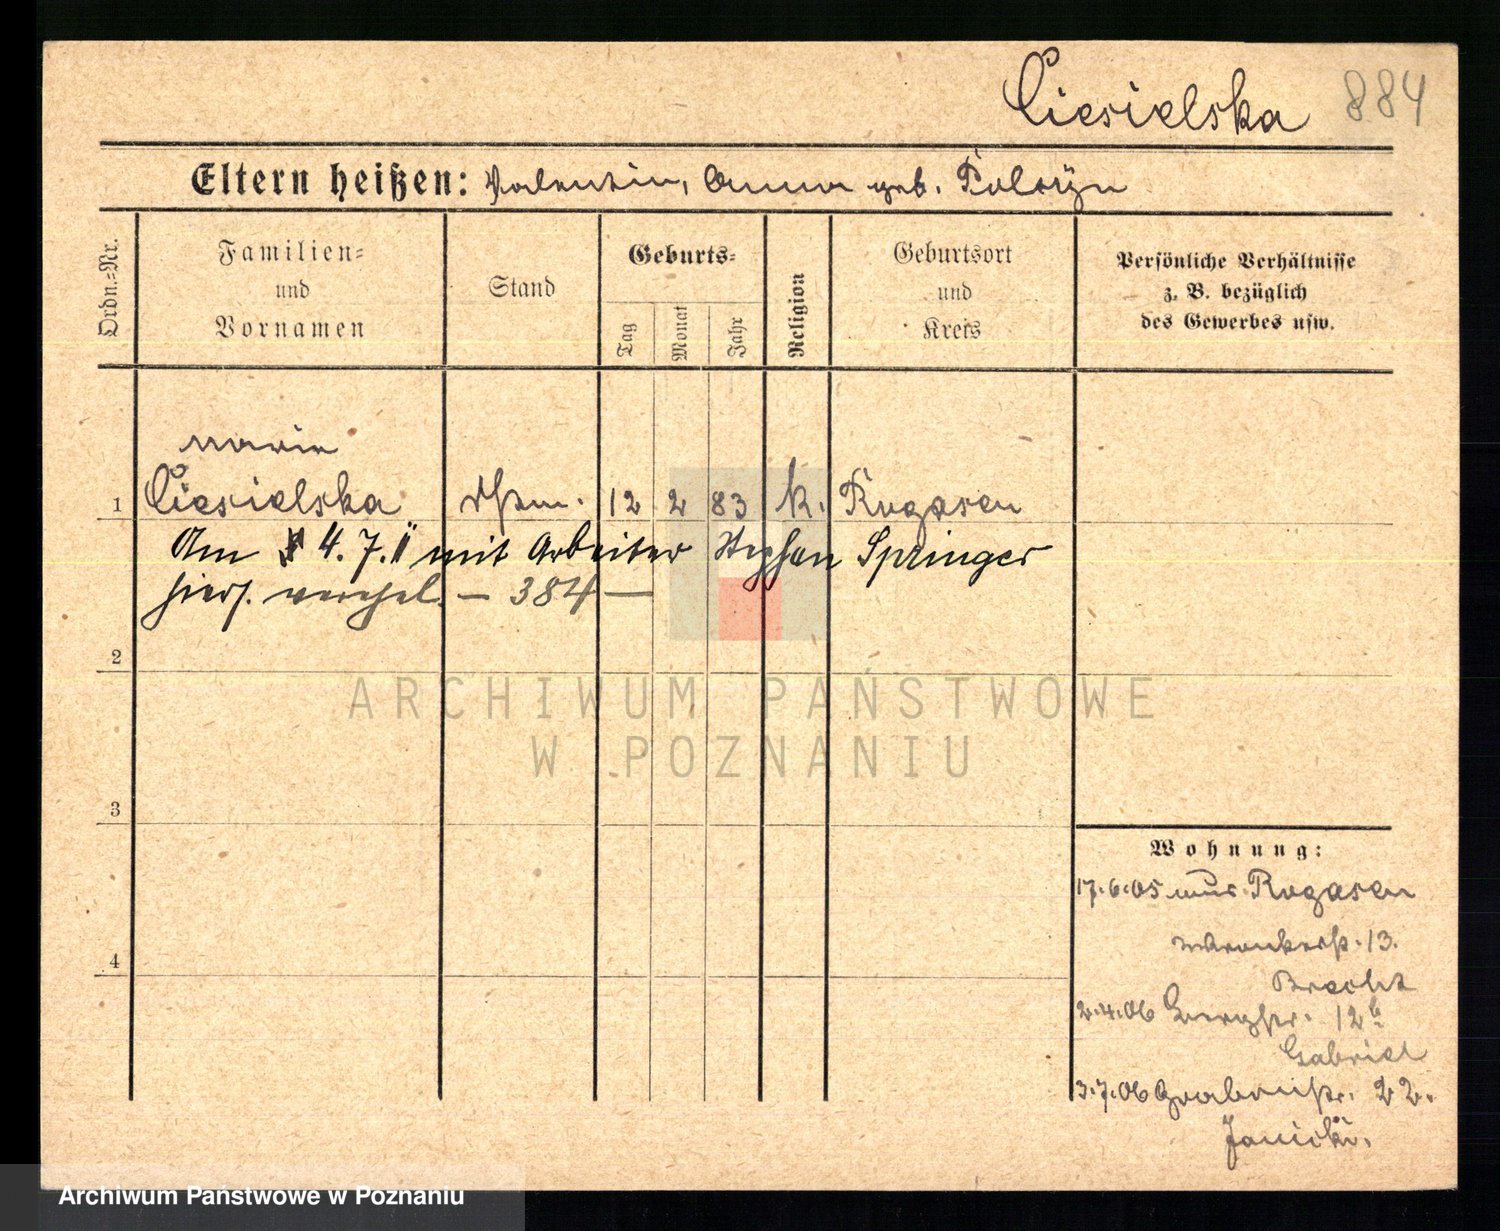 Ciesielska 884
Eltern heißen: Valentin, Anna geb.
Ordn.-Nr.
Familien-
und
Vornamen
Stand
Geburts-
Tag
Monat
Jahr
Religion
Geburtsort
und
Kreis
Persönliche Verhältnisse
z. B. bezüglich
des Gewerbes usw.
Marie
1 Ciesielska 12 2 83 k. Rogasen
Am 4. 7. mit Arbeiter Stephan Springer
hiers. verehel. — 384 —
2
3
4
Wohnung:
17.6.05 aus Rogasen
13.
Brecht
2.4.06 12b
Gabriel
3.7.06 Grabenstr. 22.
Janicki.
ARCHIWUM PAŃSTWOWE
W POZNANIU
Archiwum Państwowe w Poznaniu